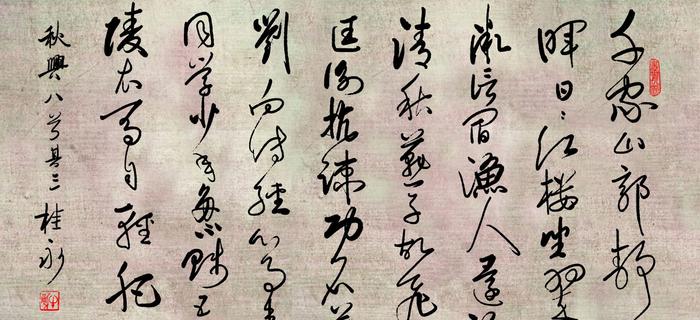 千家山郭靜
暉日〻江樓坐翠
微信宿漁人還
清秋燕子故飛
匡衡抗疎功名
劉向傳經心事
同學少年多不賤五
陵衣馬自輕肥
秋興八首其三 桂永